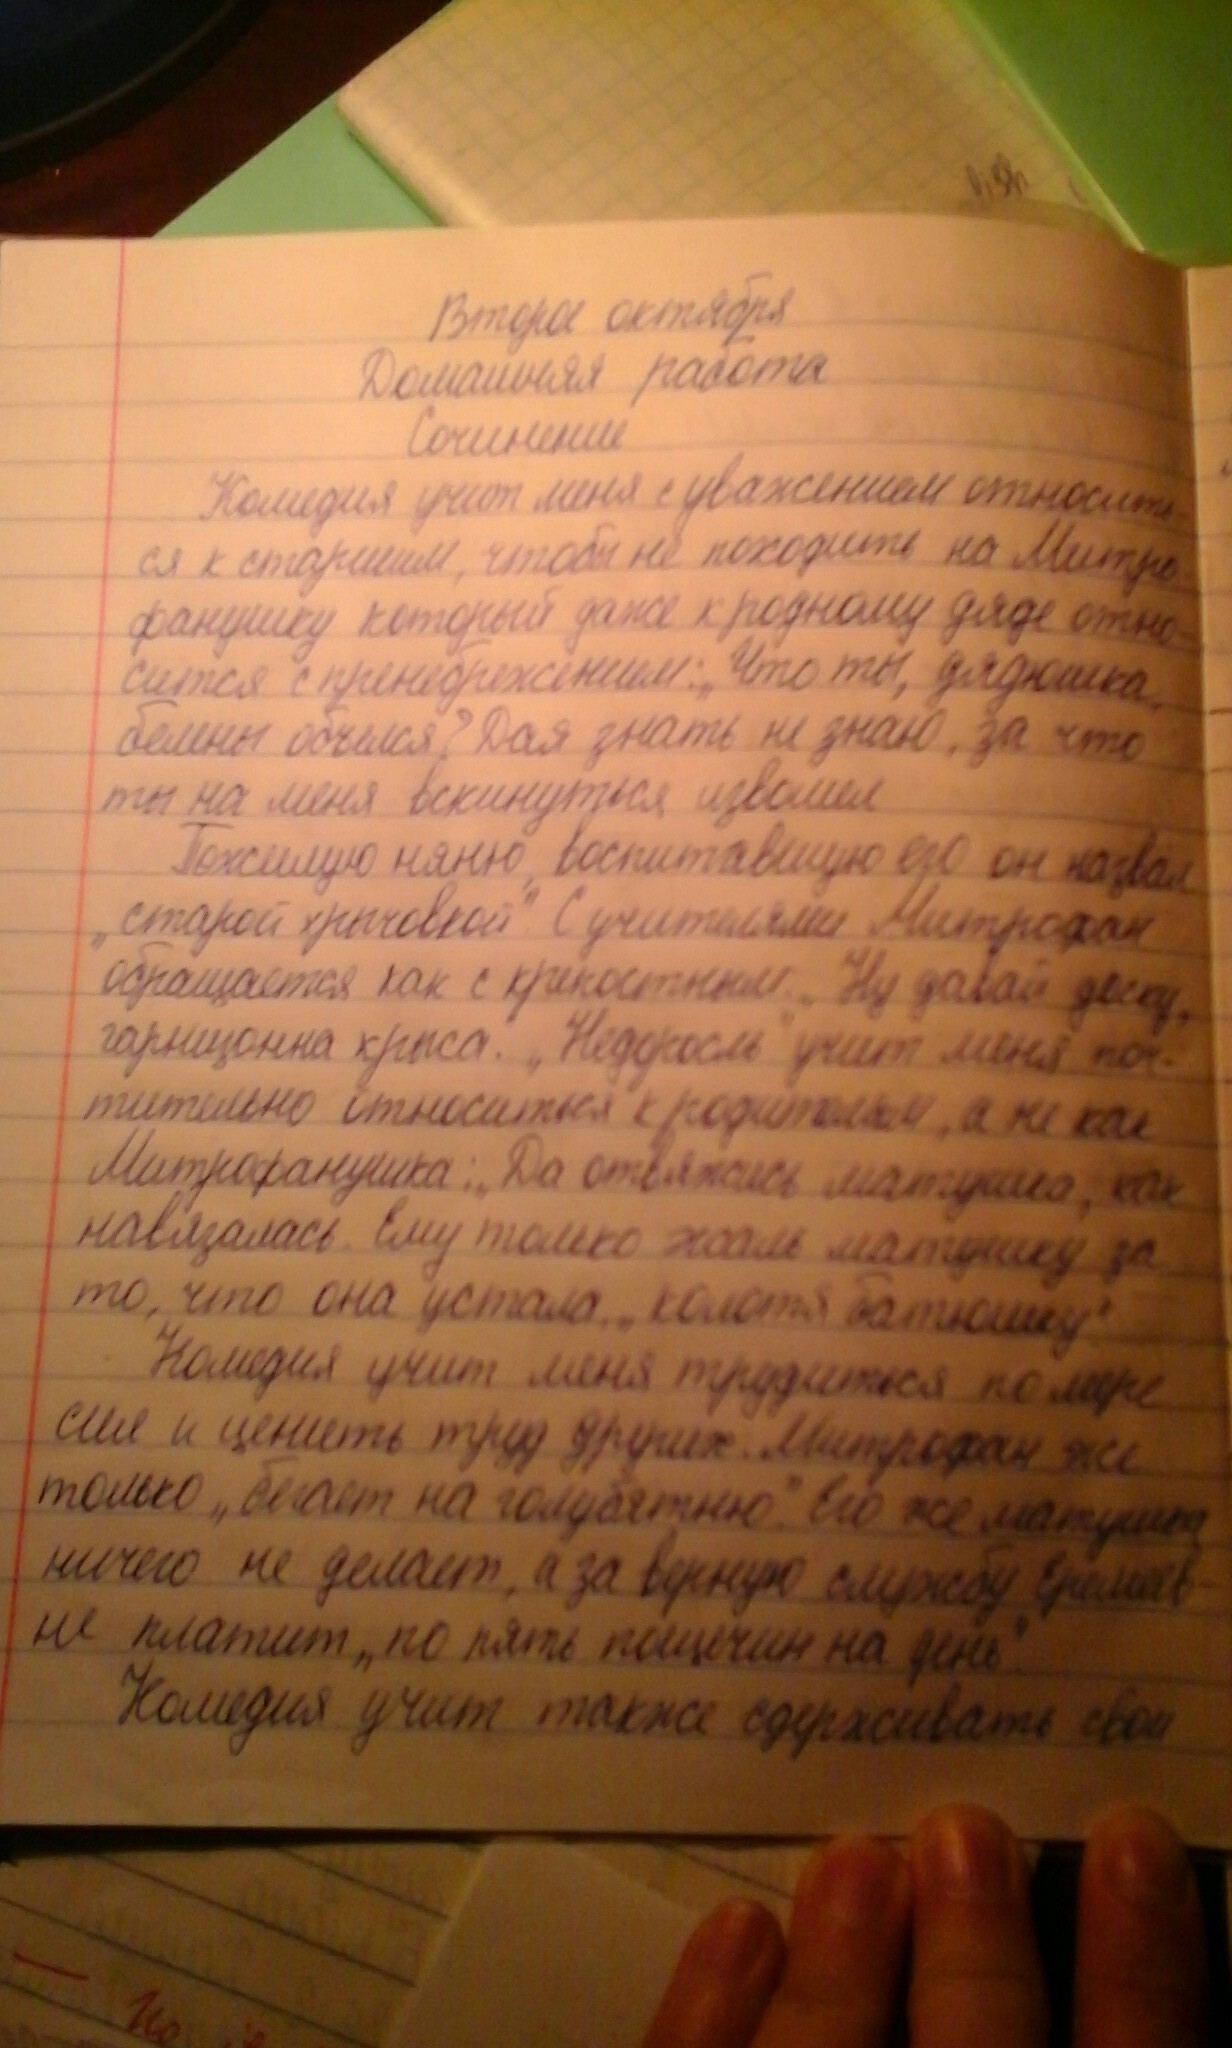 Второе октября
Домашняя работа
Сочинение
Комедия учит меня с уважением относить-
ся к старшим, чтобы не походить на Митро-
фанушку который даже к родному дяде отно-
сится с пренебрежением: „Что ты, дядюшка,
белены объелся? Да я знать не знаю, за что
ты на меня вскинуться изволил
Пожилую няню, воспитавшую его он назвал
„старой хрычовкой". С учителями Митрофан
обращается как с крепостным. „Ну давай доску,
гарнизонна крыса. „Недоросль" учит меня поч-
тительно относиться к родителям, а не как
Митрофанушка: „Да отвяжись матушка, как
навязалась. Ему только жаль матушку за
то, что она устала, „колотя батюшку"
Комедия учит меня трудиться по мере
сил и ценить труд других. Митрофан же
только „бегает на голубятню". Его же матушка
ничего не делает, а за верную службу Еремеев-
не платит „по пять пощечин на день".
Комедия учит также сдерживать свои